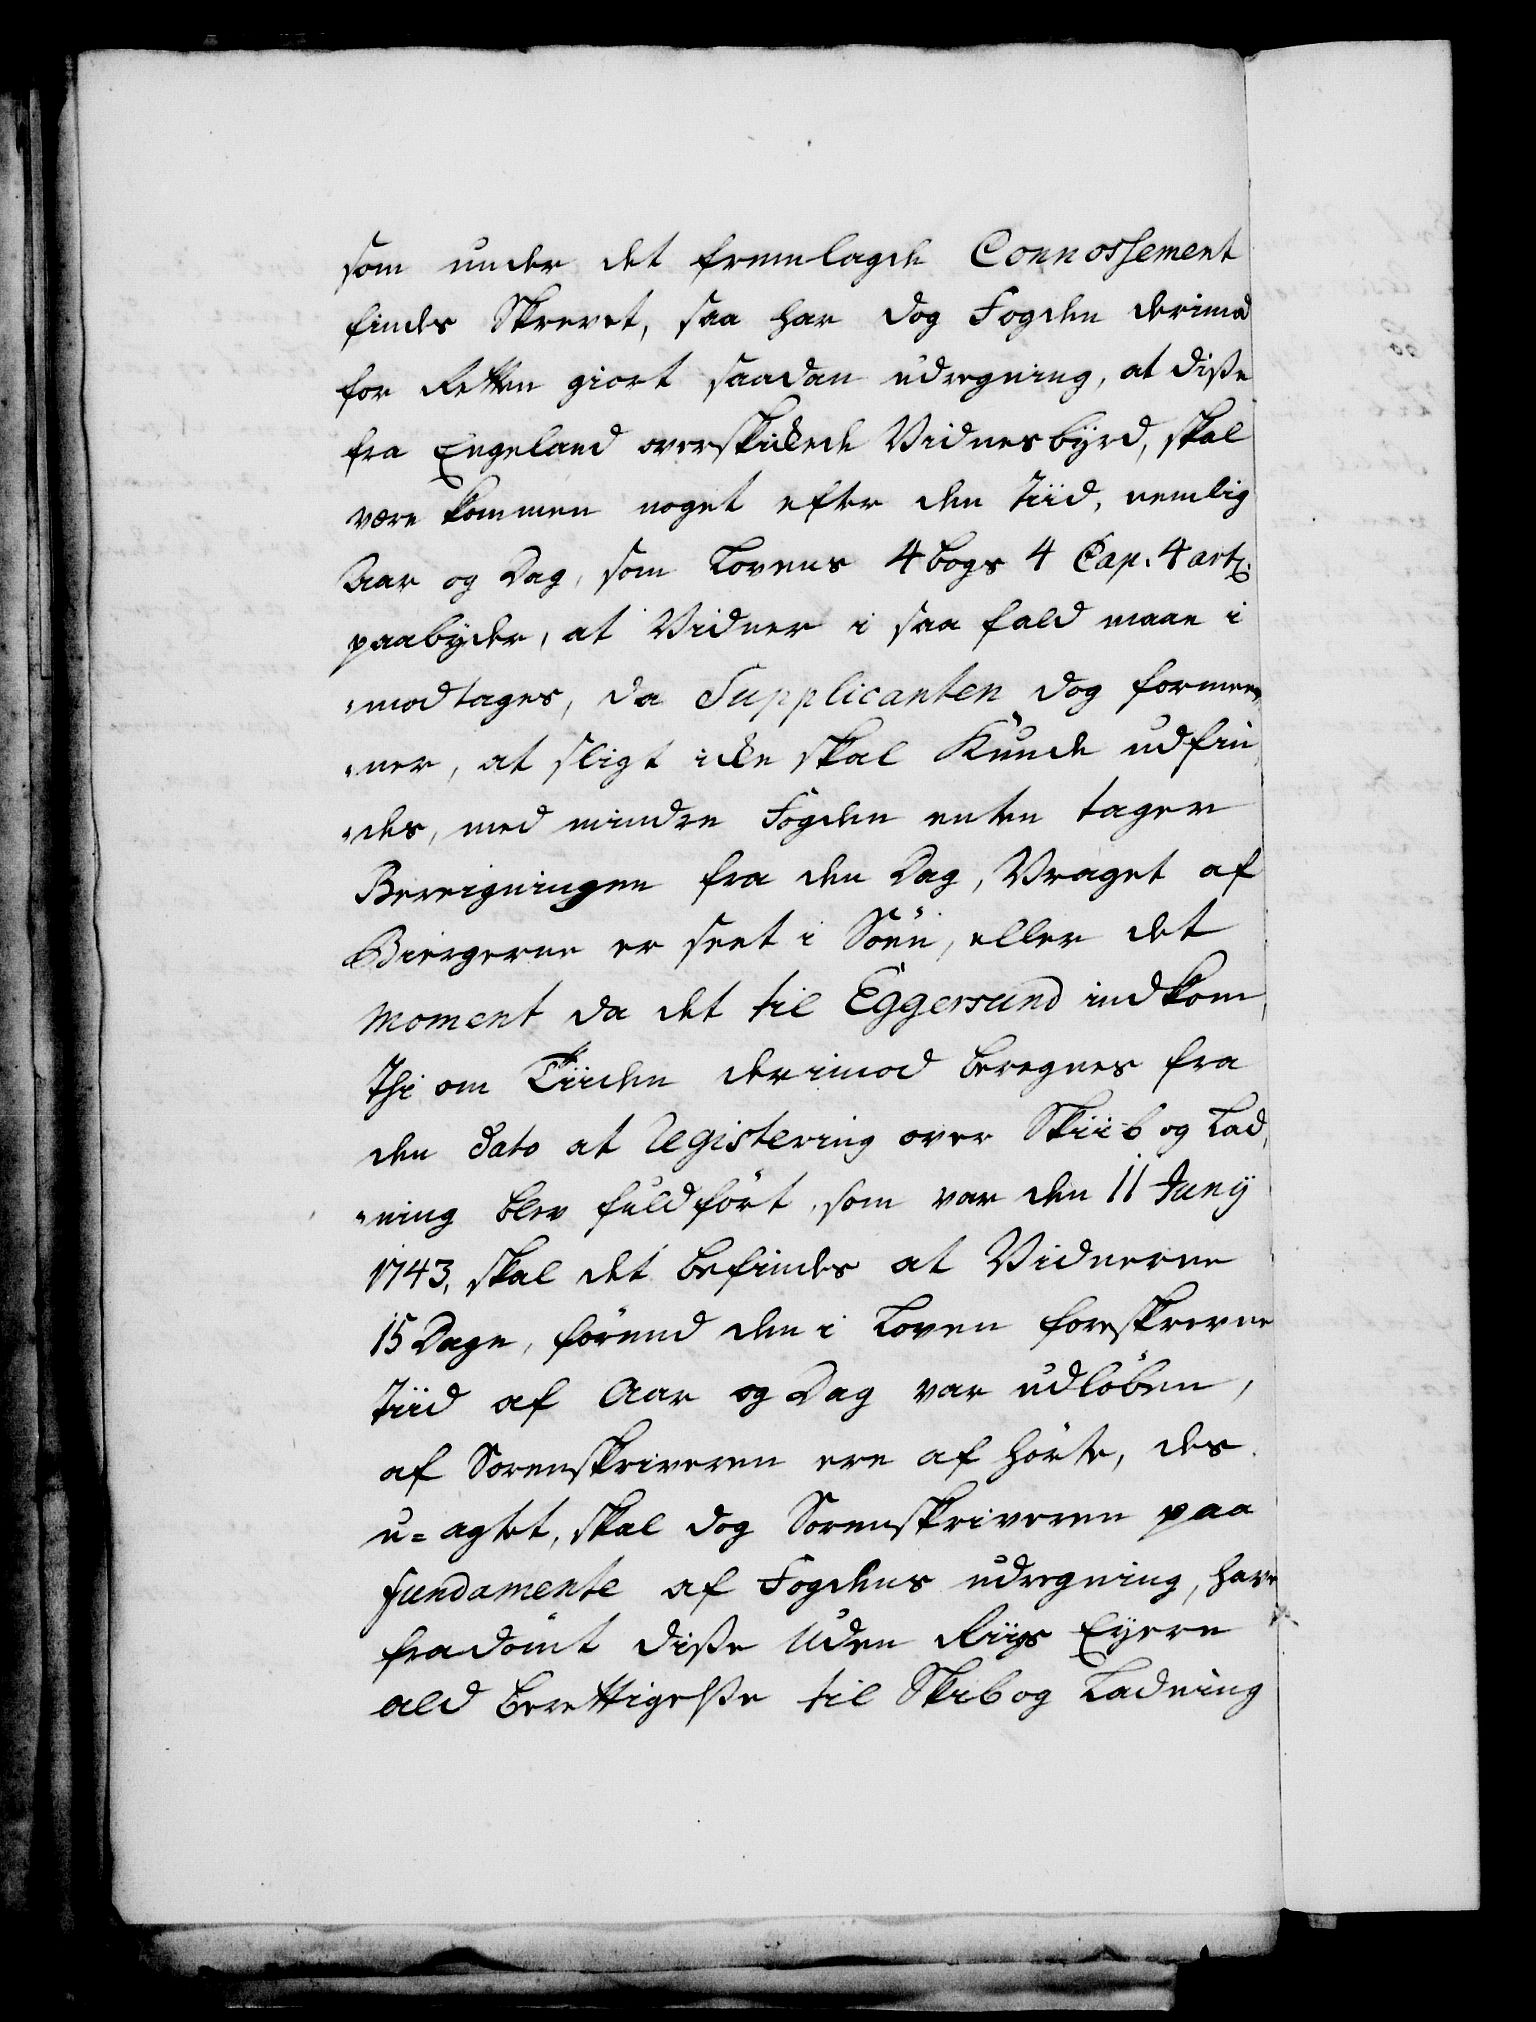 som under det fremlagde Connossement
findes Skrevet, saa har dog Fogden derimod
for Retten giort saadan udregning, at disse
fra Engeland overskikkede Vidnesbyrd, skal
være kommen noget efter den Tiid, nemlig
Aar og Dag, som Lovens 4 bogs 4 Cap. 4 art:
paabyder, at Vidner i saa fald maae i
modtages, da Supplicanten dog formee-
-ner, at sligt icke skal Kunde udfin-
-des, med mindre Fogden enten tager
Bereigningen fra den Dag, Vraget af
Biergerne er seet i Söen, eller det
Moment da det til Eggersund indkom,
Thi om Tiiden derimod beregnes fra
den dato at Registering over Skiib og Lad-
-ning blev fuldfört, som var den 11 Juny
1743, skal det befindes at Vidnerne
15 Dage, förend den i Loven foreskrevne
Tiid af Aar og Dag var udlöben,
af Sorenskriveren ere af hörte, des
u=agtet, skal dog Sorenskriveren paa
fundamente af Fogdens udregning, have
fradömt disse Uden Riigs Eyere
ald berettigelsse til Skib og Ladning